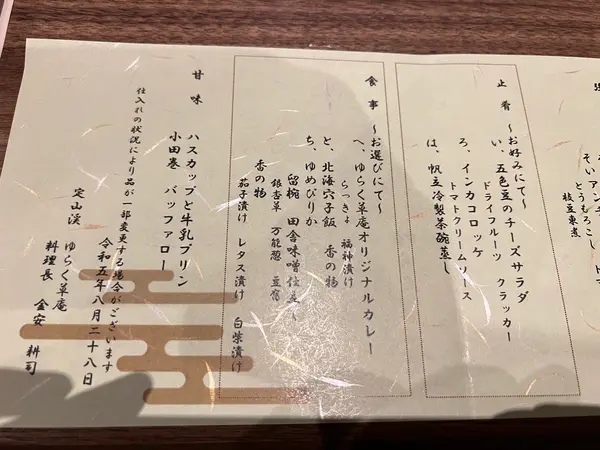 そいアンチ
とうもろこし
枝豆東煮
止肴 ～お好みにて～
い、五色豆のチーズサラダ
ドライフルーツ クラッカー
ろ、インカコロッケ
トマトクリームソース
は、帆立冷製茶碗蒸し
食事 ～お選びにて～
へ、ゆらく草庵オリジナルカレー
らっきょ 福神漬け
と、北海穴子飯 香の物
ち、ゆめぴりか
留椀 田舎味噌仕立て
銀杏草 万能葱 豆腐
香の物
茄子漬け レタス漬け 白柴漬け
甘味 ハスカップと牛乳プリン
小田巻 バッファロー
仕入れの状況により品が一部変更する場合がございます
令和五年八月二十八日
定山渓 ゆらく草庵
料理長 金安 耕司